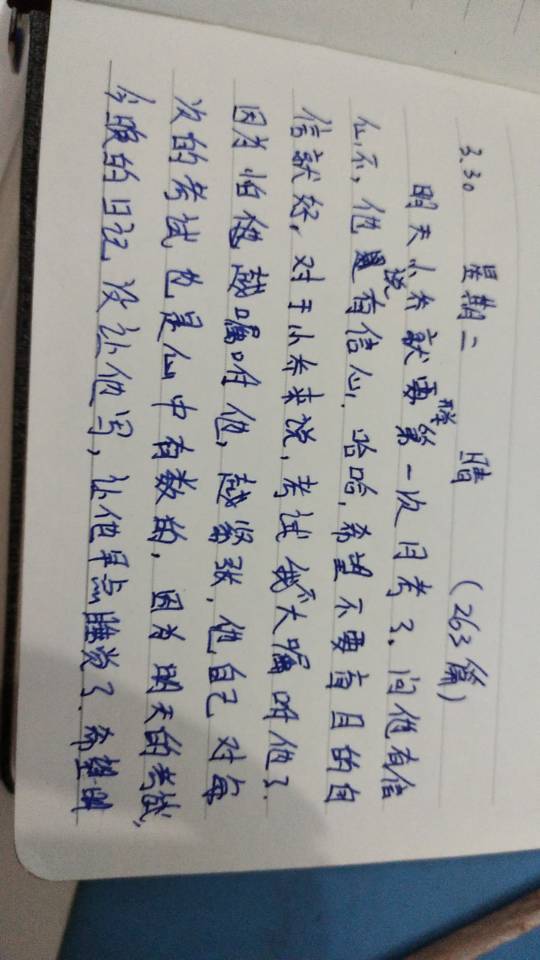 3.30 星期二 晴 (263篇)
明天小禾就要第一次月考了、问他有信
心不, 他说有信心. 哈哈, 希望不要盲目的自
信就好, 对于小禾来说, 考试我不大嘱咐他了.
因为怕越嘱咐他, 越紧张, 他自己对每
次的考试也是心中有数的, 因为明天的考试,
今晚的日记没让他写, 让他早点睡觉了. 希望明